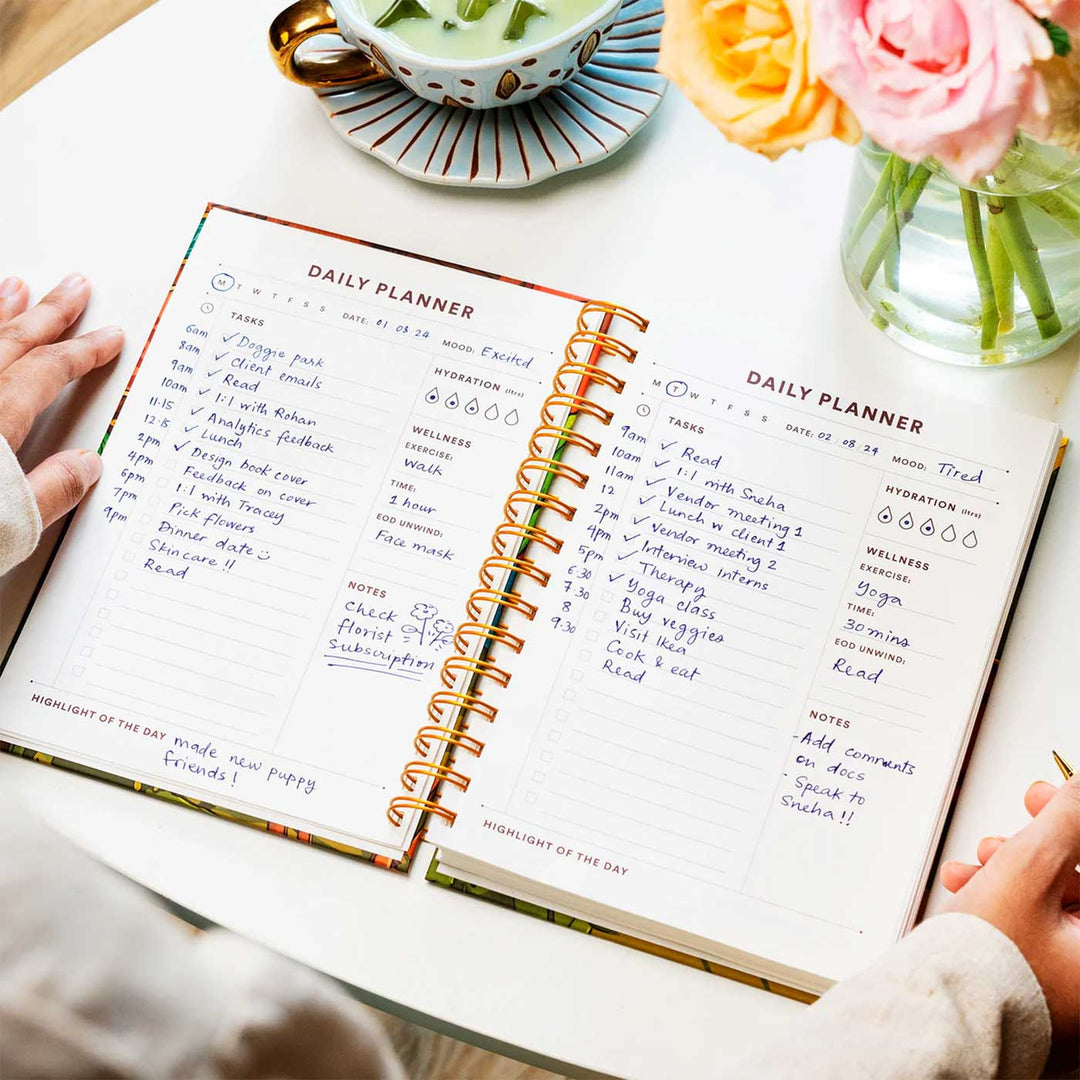 DAILY PLANNER
M T W T F S S
DATE: 01 08 24
MOOD: Excited
TASKS
6am
8am
9am
10am
11.15
12.15
2pm
4pm
6pm
7pm
9pm
✓ Doggie park
✓ Client emails
✓ Read
✓ 1:1 with Rohan
✓ Analytics feedback
✓ Lunch
✓ Design book cover
Feedback on cover
1:1 with Tracey
Pick flowers
Dinner date
Skincare !!
Read
HYDRATION (ltrs)
WELLNESS
EXERCISE:
Walk
TIME:
1 hour
EOD UNWIND:
Face mask
NOTES
Check
florist
subscription
HIGHLIGHT OF THE DAY made new puppy
friends!
DAILY PLANNER
M T W T F S S
DATE: 02 / 08 / 24
MOOD: Tired
TASKS
9am
10am
11am
12
2pm
4pm
5pm
6:30
7:30
8
9:30
✓ Read
✓ 1:1 with Sneha
✓ Vendor meeting 1
✓ Lunch w client 1
✓ Vendor meeting 2
✓ Interview interns
✓ Therapy
✓ Yoga class
Buy veggies
Visit Ikea
Cook & eat
Read
HYDRATION (ltrs)
WELLNESS
EXERCISE:
Yoga
TIME:
30 mins
EOD UNWIND:
Read
NOTES
- Add comments
on docs
- Speak to
Sneha!!
HIGHLIGHT OF THE DAY